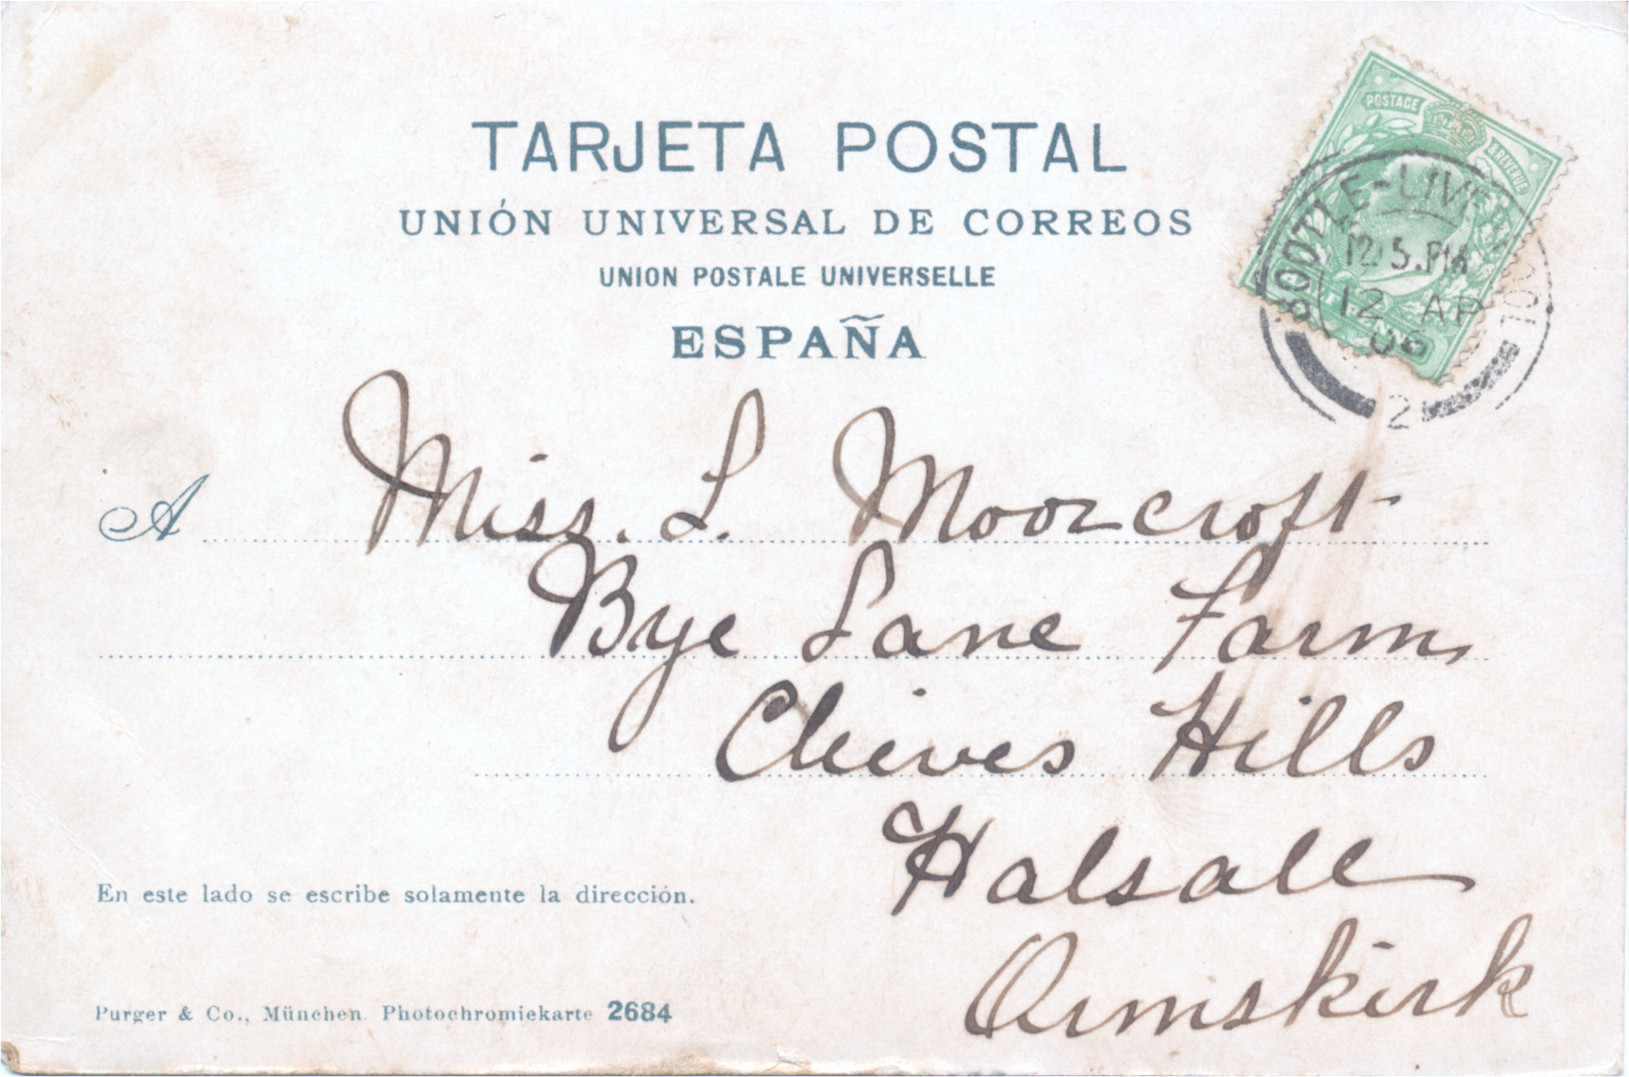 TARJETA POSTAL
UNIÓN UNIVERSAL DE CORREOS
UNION POSTALE UNIVERSELLE
ESPAÑA
POSTAGE & REVENUE
BOOTLE-LIVERPOOL
12.5.PM
12 AP
06
2
A Miss. L. Moorcroft
Bye Lane Farm,
Chieves Hills
Halsall
Ormskirk
En este lado se escribe solamente la dirección.
Purger & Co., München. Photochromiekarte 2684